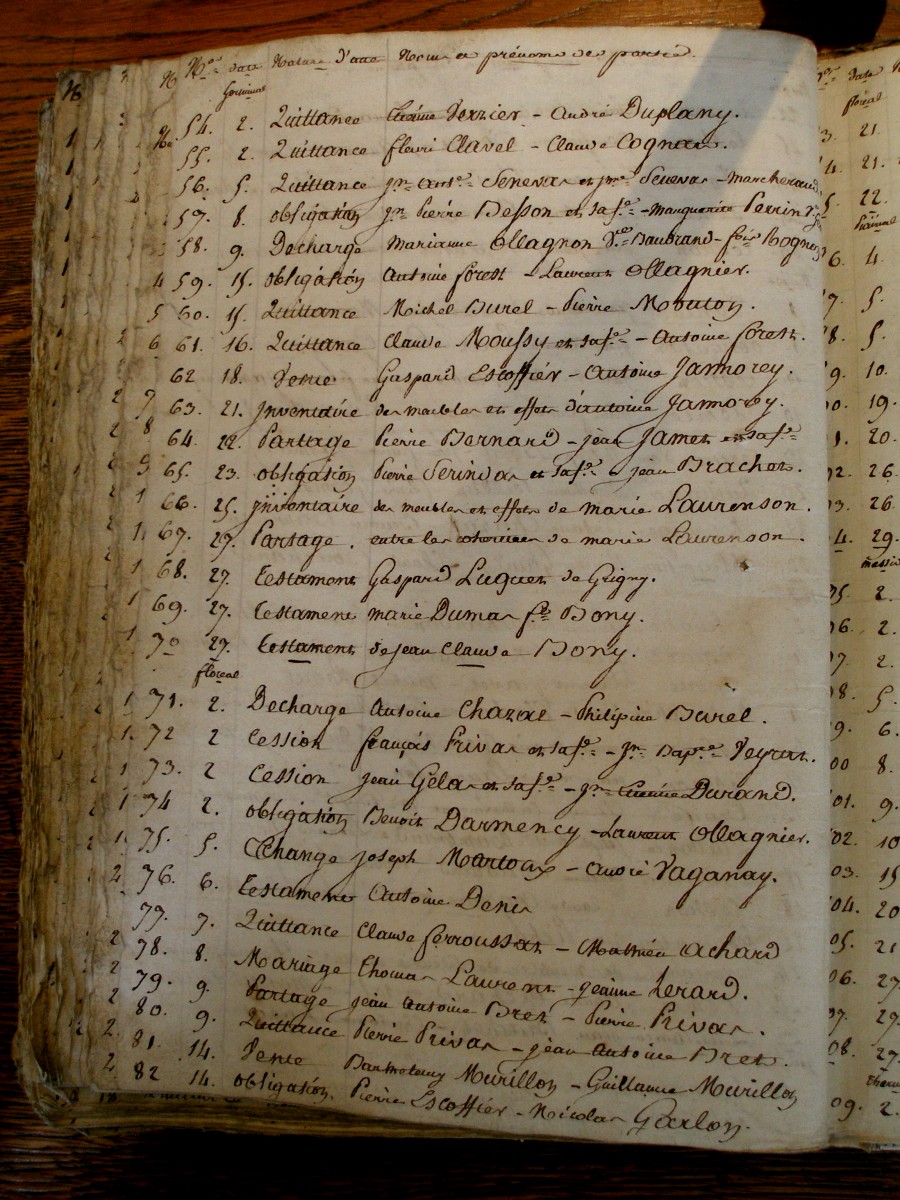 Nos date Nature d'acte Noms et prénoms des parties
Germinal
No. 54. 2. Quittance Etiénne Verzier - André Duplany.
55. 2. Quittance fleuri Clavel - Claude Cognas.
56. 5. Quittance jn. ant.e Senevas et jn. Senevas - Marcherand
57. 8. obligation jn. Pierre Besson et sa f.e - Marguerite Perrin
58. 9. Decharge Marianne Ollagnon V.e Daudrand - Rognon
59. 15. obligation Antoine forest - Laurent Ollagnier.
60. 15. Quittance Michel Burel - Pierre Mouton.
61. 16. Quittance Claude Moussy et sa f.e - Antoine forest.
62 18. Vente Gaspard Escoffiér - Antoine Jamorey.
63. 21. jnventaire des meubles et effets d'antoine Jamorey.
64. 22. Partage Pierre Bernard - jean Jamet et sa f.e
65. 23. obligation Pierre Serindas et sa f.e - jean Brachet.
66. 25. jnventaire des meubles et effets de marie Laurenson.
67. 27. Partage. entre les cohéritiers de marie Laurenson.
68. 27. Testament Gaspard Luquet de Grigny.
69. 27. Testament marie Dumas f.e Bony.
70 27. Testament de jean Claude Bony.
floreal
71. 2. Decharge Antoine Chazal - Philipine Burel.
72 2 Cession françois Privas et sa f.e - jn. Bap.te Peyrat.
73. 2 Cession jean Gélas et sa f.e - jn. Etienne Durand.
74 2. obligation Benoit Darmency - Laurent Ollagnier.
75. 5. Echange joseph Martoux - André Vaganay.
76. 6. Testament Antoine Denis
77. 7. Quittance Claude ferroussat - Mathieu Achard
78. 8. Mariage Thomas Laurent - jeanne Lerard.
79. 9. Partage jean Antoine Bret - Pierre Privas.
80. 9. Quittance Pierre Privas - jean Antoine Bret.
81 14. Vente Barthelemy Murillon - Guillaume Murillon
82 14. obligation. Pierre Escoffiér - Nicolas Garlon.
date
floreal
21.
21.
22.
Prairial
4.
5.
5.
10.
19.
20.
26.
26.
29.
messid
2.
2.
2.
5.
6.
8.
9.
10
15
20
21
27
27.
27.
2.